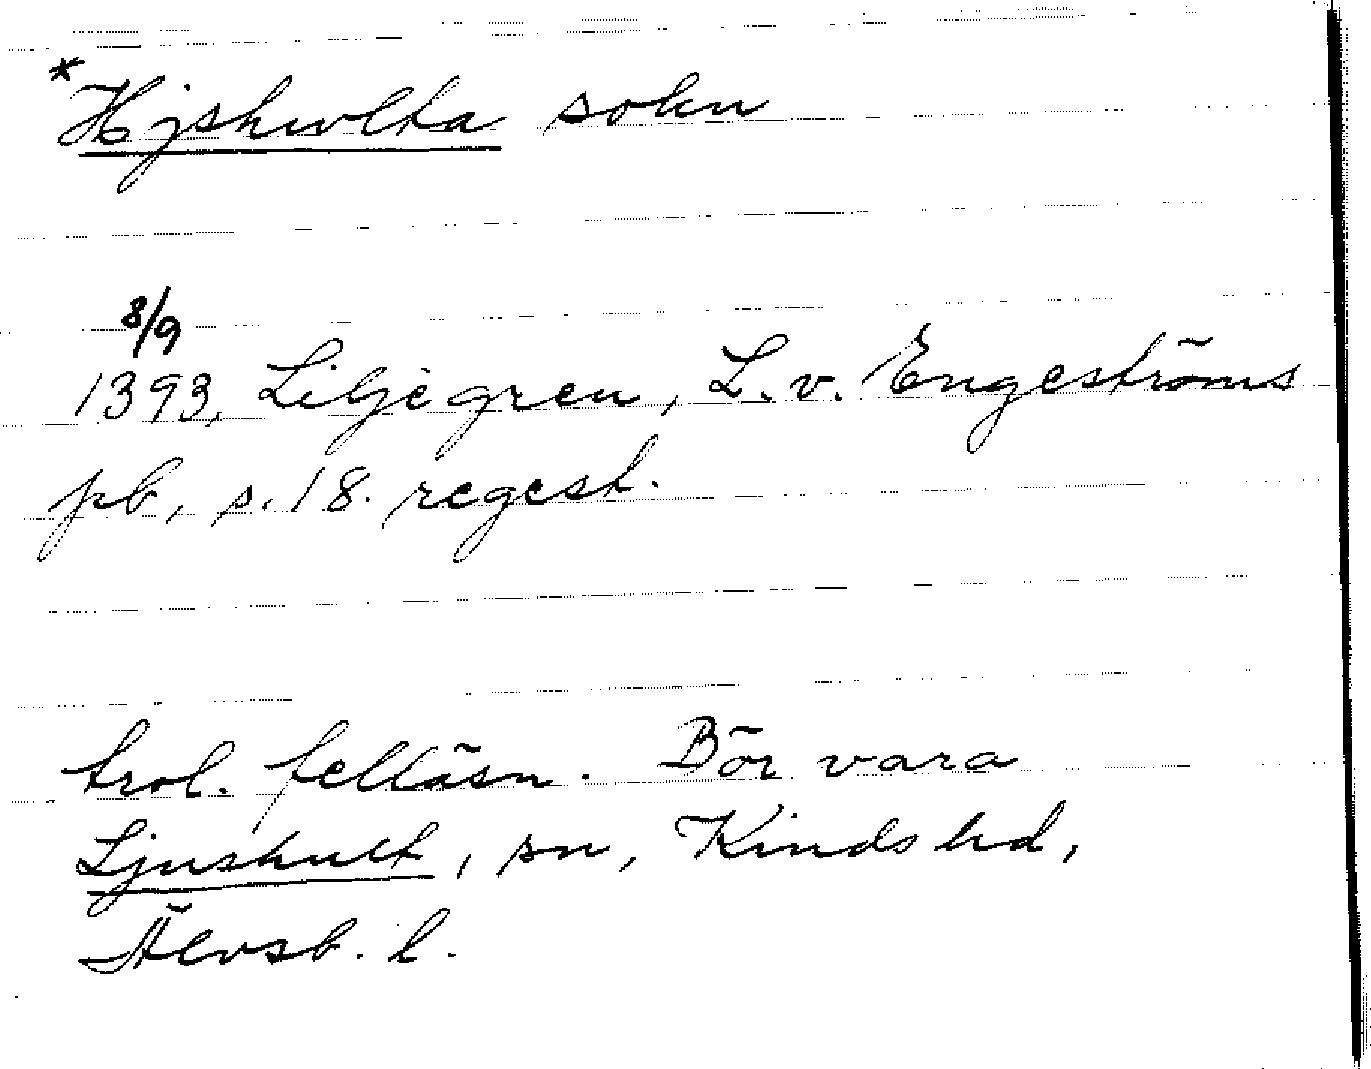 *Hjshwlta sokn
8/9
1393, Liljegren, L. v. Engeströms
pb, s. 18. regest.
trol. felläsn. Bör vara
Ljushult, sn, Kinds hd,
Älvsb. l.